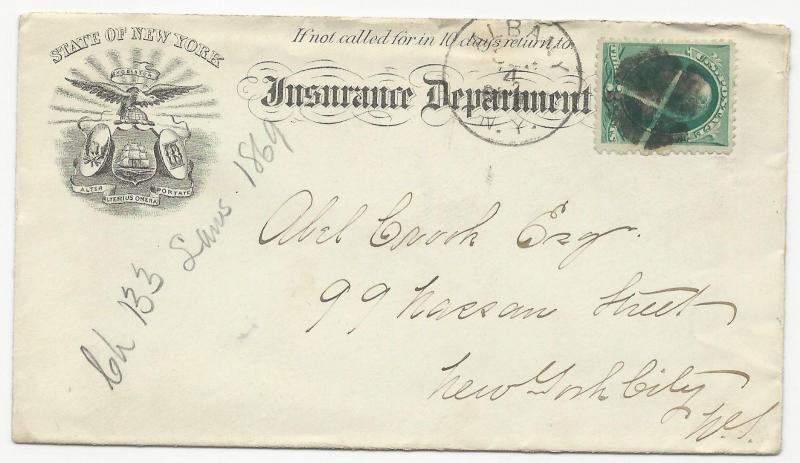 STATE OF NEW YORK
EXCELSIOR
ALTER
ALTERIUS ONERA
PORTATE
If not called for in 10 days return to
Insurance Department
ALBANY
4
N.Y.
U.S. POSTAGE
Ch 133 Laws 1869
Abel Crook Esq.
99 Nassau Street
New York City
N.Y.